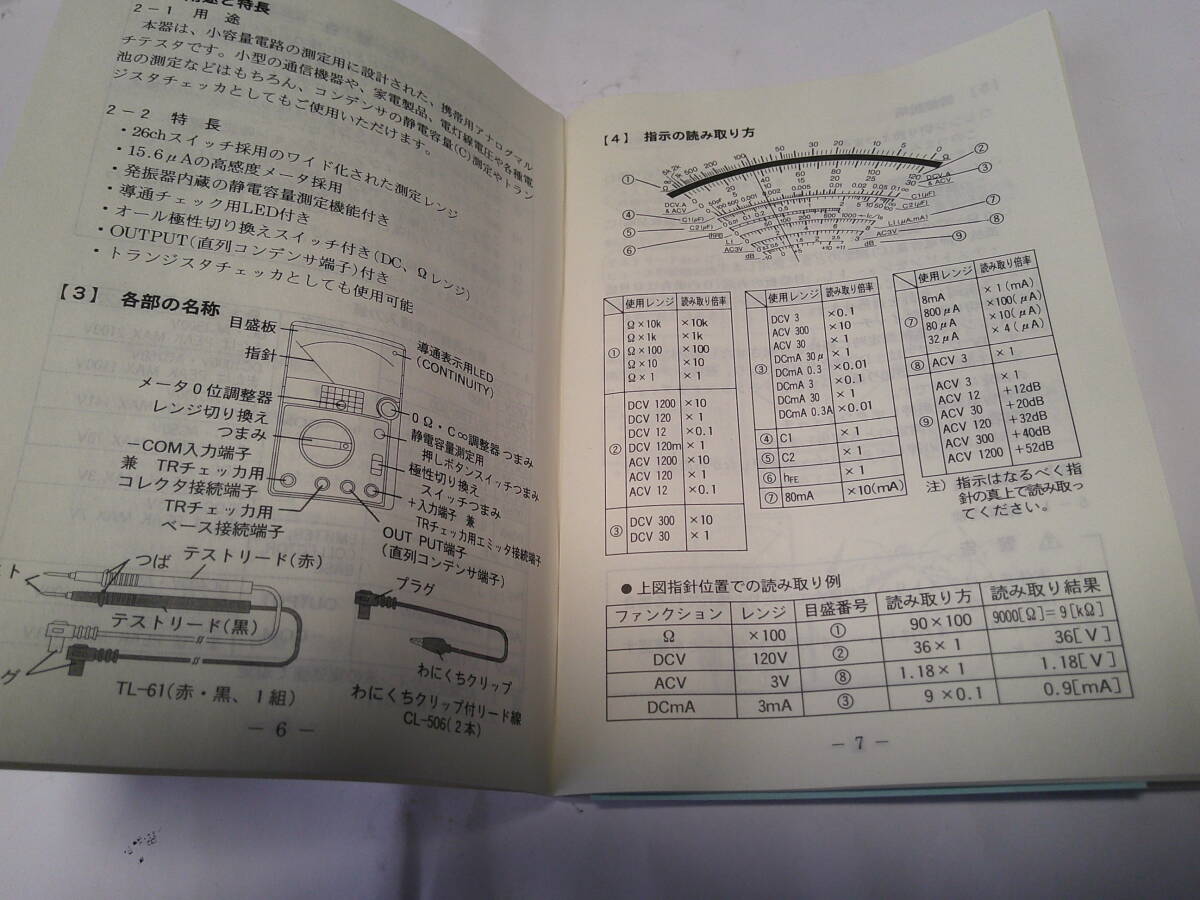 用途と特長
2-1 用 途
本器は、小容量電路の測定用に設計された、携帯用アナログマル
チテスタです。小型の通信機器や、家電製品、電灯線電圧や各種電
池の測定などはもちろん、コンデンサの静電容量(C)測定やトラン
ジスタチェッカとしてもご使用いただけます。
2-2 特 長
・26chスイッチ採用のワイド化された測定レンジ
・15.6μAの高感度メータ採用
・発振器内蔵の静電容量測定機能付き
・導通チェック用LED付き
・オール極性切り換えスイッチ付き(DC、Ωレンジ)
・OUTPUT(直列コンデンサ端子)付き
・トランジスタチェッカとしても使用可能
【3】 各部の名称
目盛板
指針
導通表示用LED
(CONTINUITY)
メータ0位調整器
レンジ切り換え
つまみ
-COM入力端子
兼 TRチェッカ用
コレクタ接続端子
TRチェッカ用
ベース接続端子
0Ω・C∞調整器つまみ
静電容量測定用
押しボタンスイッチつまみ
極性切り換え
スイッチつまみ
+入力端子 兼
TRチェッカ用エミッタ接続端子
OUT PUT端子
(直列コンデンサ端子)
つば
テストリード(赤)
テストリード(黒)
TL-61(赤・黒、1組)
プラグ
わにくちクリップ
わにくちクリップ付リード線
CL-506(2本)
- 6 -
【4】 指示の読み取り方
① ② ③ ④ ⑤ ⑥ ⑦ ⑧ ⑨
DCV.A
& ACV
C1(μF)
C2(μF)
hFE
LI
AC3V
dB
Ω
DCV.A
& ACV
C1(μF)
C2(μF)
Ic/Ib
LI(μA,mA)
AC3V
dB
使用レンジ 読み取り倍率
① Ω×10k ×10k
Ω×1k ×1k
Ω×100 ×100
Ω×10 ×10
Ω×1 ×1
② DCV 1200 ×10
DCV 120 ×1
DCV 12 ×0.1
DCV 120m ×1
ACV 1200 ×10
ACV 120 ×1
ACV 12 ×0.1
③ DCV 300 ×10
DCV 30 ×1
使用レンジ 読み取り倍率
③ DCV 3 ×0.1
ACV 300 ×10
ACV 30 ×1
DCmA 30μ ×1
DCmA 0.3 ×0.01
DCmA 3 ×0.1
DCmA 30 ×1
DCmA 0.3A ×0.01
④ C1 ×1
⑤ C2 ×1
⑥ hFE ×1
⑦ 80mA ×10(mA)
使用レンジ 読み取り倍率
⑦ 8mA ×1(mA)
800μA ×100(μA)
80μA ×10(μA)
32μA ×4(μA)
⑧ ACV 3 ×1
⑨ ACV 3 ×1
ACV 12 +12dB
ACV 30 +20dB
ACV 120 +32dB
ACV 300 +40dB
ACV 1200 +52dB
注) 指示はなるべく指
針の真上で読み取っ
てください。
● 上図指針位置での読み取り例
ファンクション レンジ 目盛番号 読み取り方 読み取り結果
Ω ×100 ① 90×100 9000[Ω]=9[kΩ]
DCV 120V ② 36×1 36[V]
ACV 3V ⑧ 1.18×1 1.18[V]
DCmA 3mA ③ 9×0.1 0.9[mA]
- 7 -